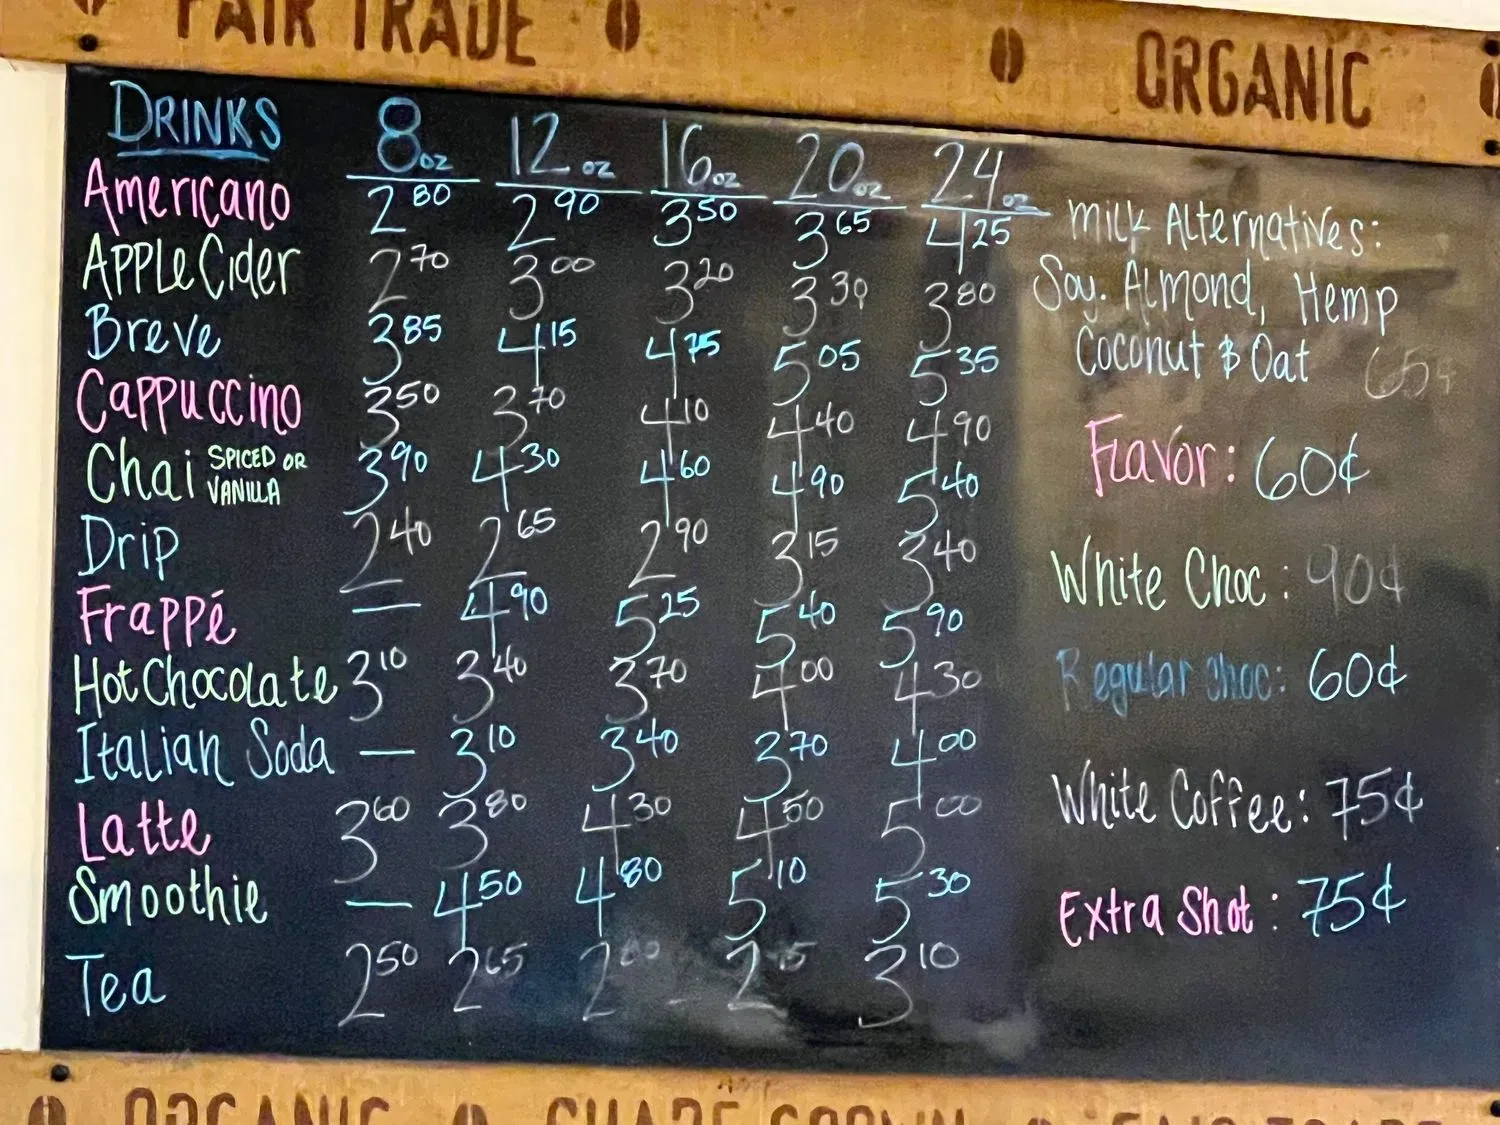 FAIR TRADE ORGANIC
DRINKS 8oz 12oz 16oz 20oz 24oz
Americano 2 80 2 90 3 50 3 65 4 25
Apple Cider 2 70 3 00 3 20 3 30 3 80
Breve 3 85 4 15 4 75 5 05 5 35
Cappuccino 3 50 3 70 4 10 4 40 4 90
Chai SPICED OR VANILLA 3 90 4 30 4 60 4 90 5 40
Drip 2 40 2 65 2 90 3 15 3 40
Frappé — 4 90 5 25 5 40 5 90
Hot Chocolate 3 10 3 40 3 70 4 00 4 30
Italian Soda — 3 10 3 40 3 70 4 00
Latte 3 60 3 80 4 30 4 50 5 00
Smoothie — 4 50 4 80 5 10 5 30
Tea 2 50 2 65 3 10
Milk Alternatives:
Soy. Almond, Hemp
Coconut & Oat 65¢
Flavor: 60¢
White Choc: 90¢
Regular Choc: 60¢
White Coffee: 75¢
Extra Shot: 75¢
ORGANIC SHADE GROWN FAIR TRADE